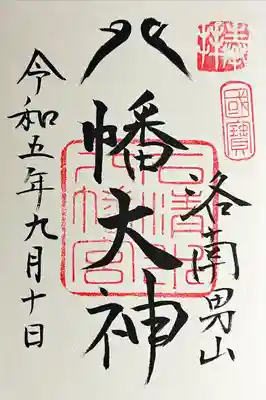 奉拝
國寶
洛南男山
八幡大神
石清水八幡宮
令和五年九月十日